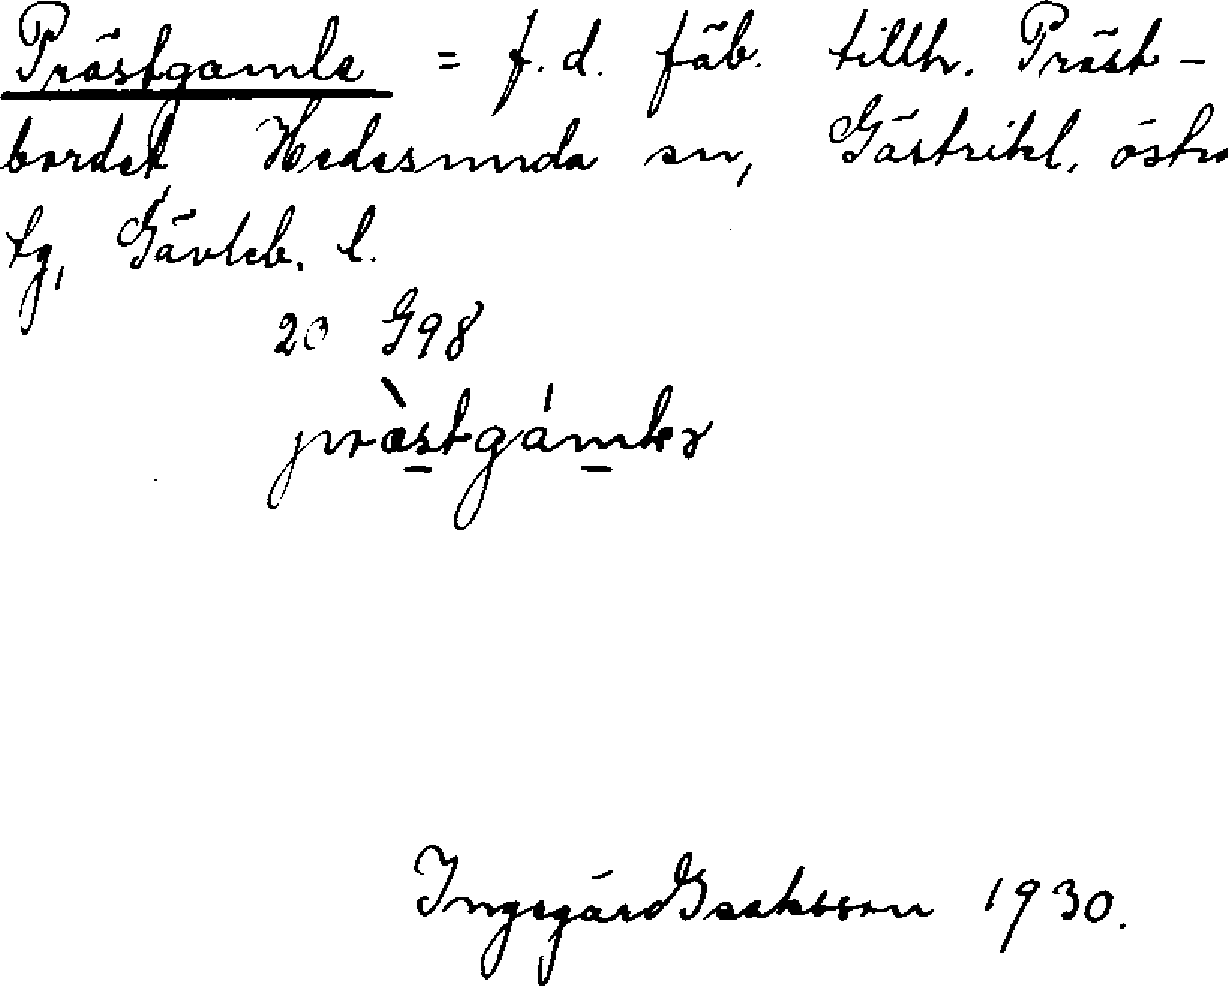 Prästgamla = f.d. fäb. tillh. Präst-
bordet Hedesunda sn, Gästrikl. östra
tg, Gävleb. l.
20 G98
pràstgámlɐ
Ingegärd Isaksson 1930.